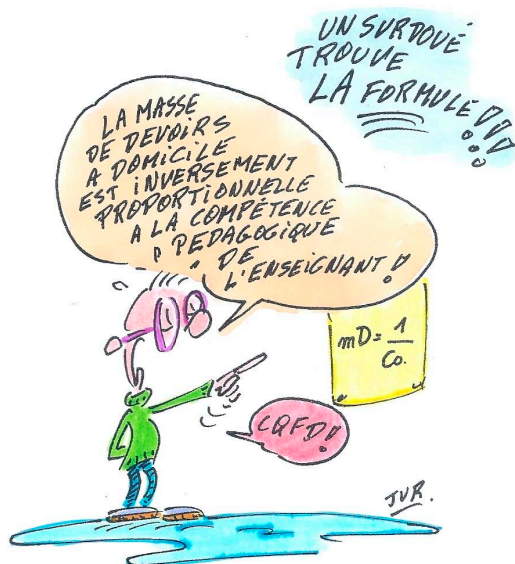 UN SURDOUÉ
TROUVE
LA FORMULE!!!
LA MASSE
DE DEVOIRS
A DOMICILE
EST INVERSEMENT
PROPORTIONNELLE
A LA COMPÉTENCE
PEDAGOGIQUE
DE
L'ENSEIGNANT!
mD = 1
Co.
CQFD!
JVR.